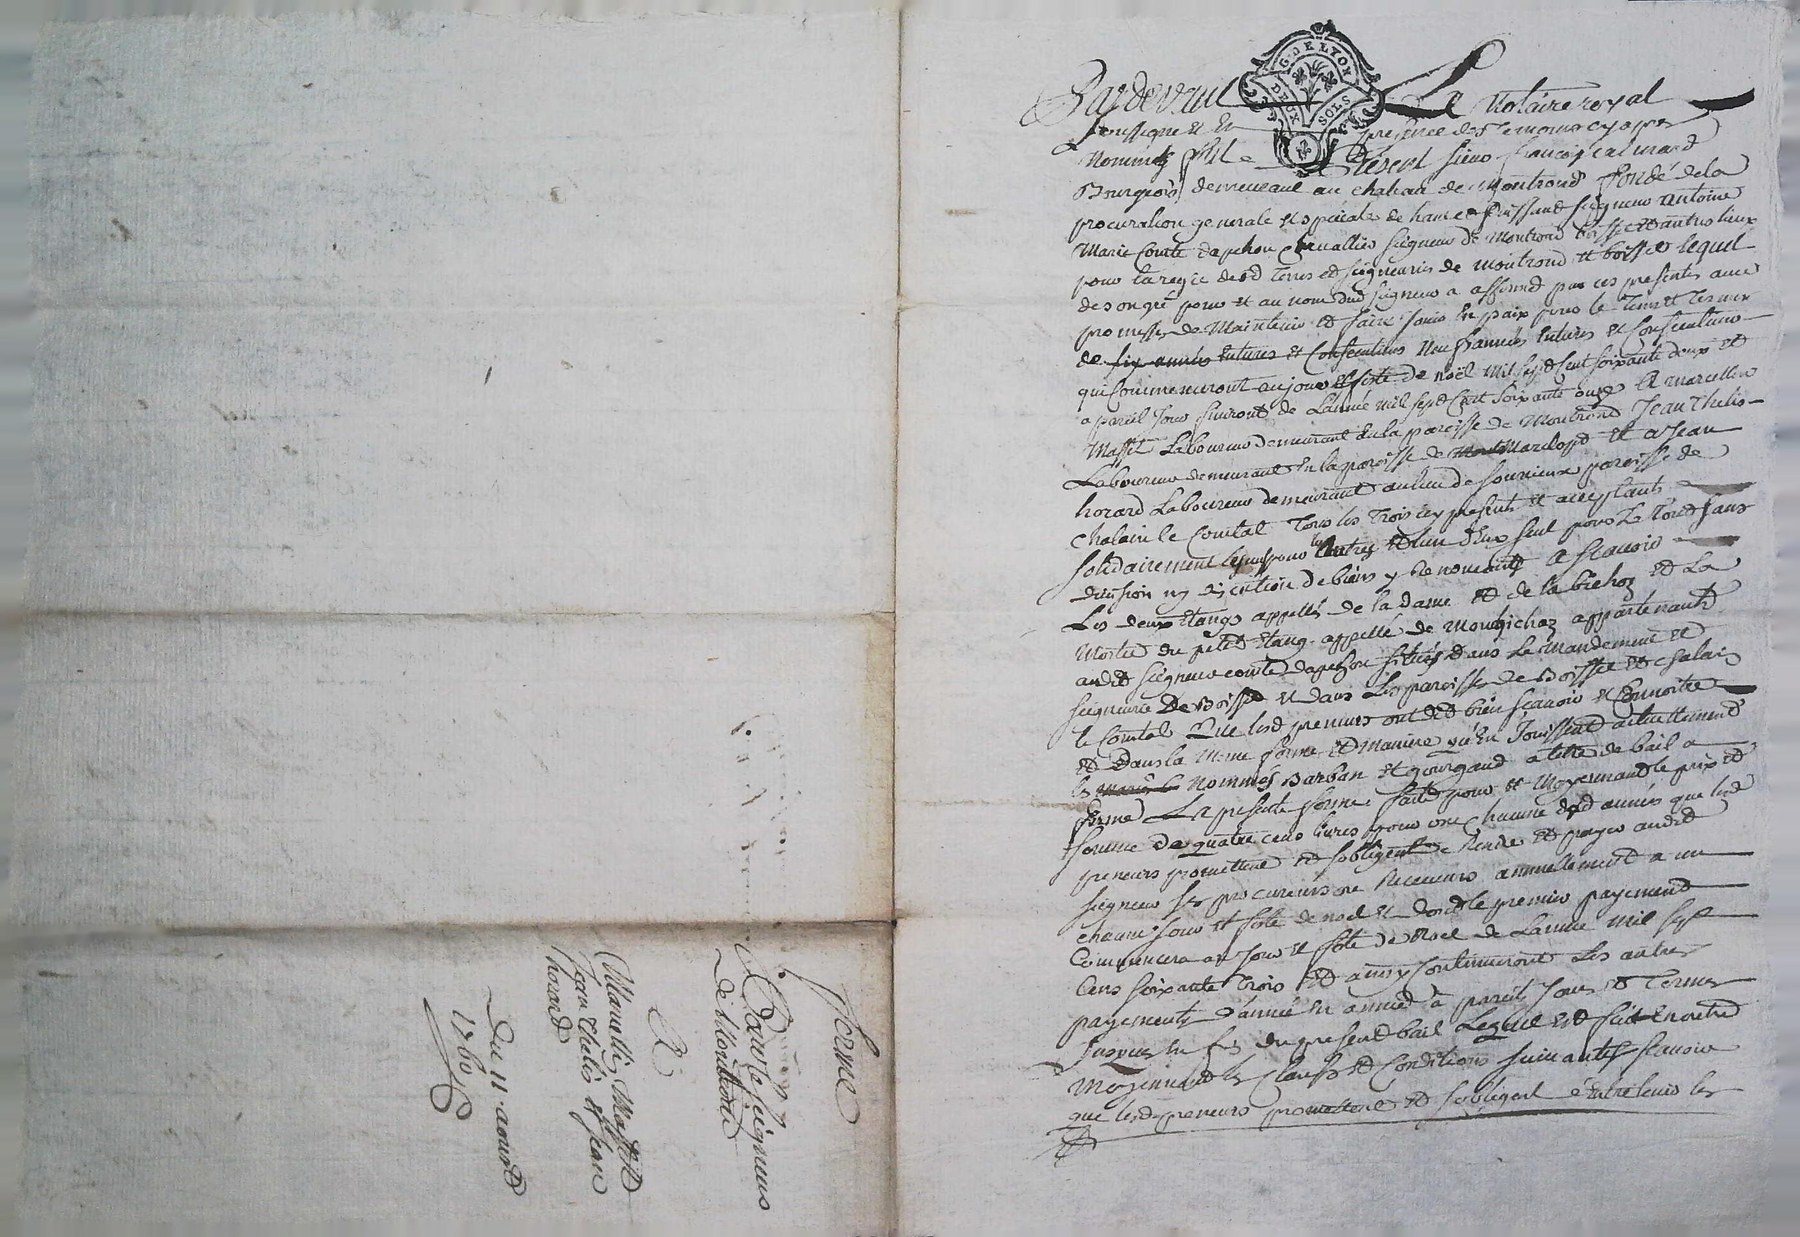 Ferme
Par le seigneur
de Montrond
A
Marcellin Masset
Jean Thelis et Jean
horard
Du 11 aoust
1760
G. DE LYON
DEUX SOLS
Pardevant Le Notaire royal
soussigné et en presence des temoins cy apres
Nommés fut Present sieur françois
Bourgeois demeurant au chateau de Montrond fondé de la
procuration generale et speciale de haut et puissant seigneur antoine
Marie Comte dapchon chevallier seigneur de Montrond boisset et autres lieux
pour la regie desd terres et seigneuries de montrond et boisset lequel
de son gré pour et au nom dud seigneur a affermé par ces presentes avec
promesse de Maintenir et faire jouir en paix pour le tems et terme
de six années futures et Consecutives Neuf années futures et Consecutives
qui Commenceront au jour et feste de noël mil sept Cent soixante deux et
a pareil jour finiront de L'année mil sept Cent soixante onze A marcellin
Masset Laboureur demeurant en la paroisse de Montrond Jean Thelis
Laboureur demeurant en la paroisse de Marclopt et a Jean
horard Laboureur demeurant au lieu de sourcieux paroisse de
chalain le Comtal tous les trois icy presents et acceptants
solidairement lun pour les autres et lun d'eux seul pour Le tout sans
division ny discution de biens y renonceants A scavoir
Les deux Etangs appellés de la dame et de la bichez et La
Moitié du petit Etang appellé de Montbichez appartenants
audit seigneur comte dapchon situés dans Le Mandement et
seigneurie De Boisset et dans Les paroisses de Boisset et chalain
le Comtal Que lesd preneurs ont dit bien scavoir et Connoitre
et Dans la meme forme et Maniere qu'en Jouissent actuellement
les Nommés Barban et gourgaud a titre de bail a
ferme La presente ferme faite pour et Moyennant le prix et
somme de quatre cens livres pour une chacune desd années que lesd
preneurs promettent et s'obligent de Rendre et payer audit
seigneur ses procureurs ou Receveurs annuellement a un
chacun jour et fete de noel et dont le premier payement
Commencera au jour et fete de Noel de Lannée mil sept
Cens soixante trois et ainsy Continueront Les autres
payements d'année en année à pareils Jours et Termes
Jusques en fin du present bail Lequel est fait en outre
moyennant les Clauses et Conditions suivantes scavoir
que lesd preneurs promettent et s'obligent entretenir les